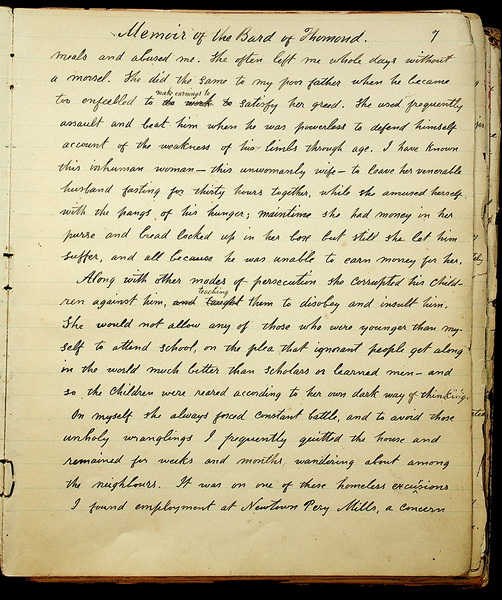 Memoir of the Bard of Thomond. 7
meals and abused me. She often left me whole days without
a morsel. She did the same to my poor father when he became
make earnings to
too enfeebled to do work to satisfy her greed. She used frequently
assault and beat him when he was powerless to defend himself
account of the weakness of his limbs through age. I have known
this inhuman woman — this unwomanly wife — to leave her venerable
husband fasting for thirty hours together, while she amused herself
with the pangs of his hunger; maintime she had money in her
purse and bread locked up in her box but still she let him
suffer, and all because he was unable to earn money for her.
Along with other modes of persecution she corrupted his child-
teaching
ren against him, and taught them to disobey and insult him.
She would not allow any of those who were younger than my-
self to attend school, on the plea that ignorant people get along
in the world much better than scholars or learned men — and
so the children were reared according to her own dark way of thinking.
On myself she always forced constant battle, and to avoid those
unholy wranglings I frequently quitted the house and
remained for weeks and months wandering about among
the neighbours. It was on one of these homeless excursions
I found employment at Newtown Pery Mills, a concern